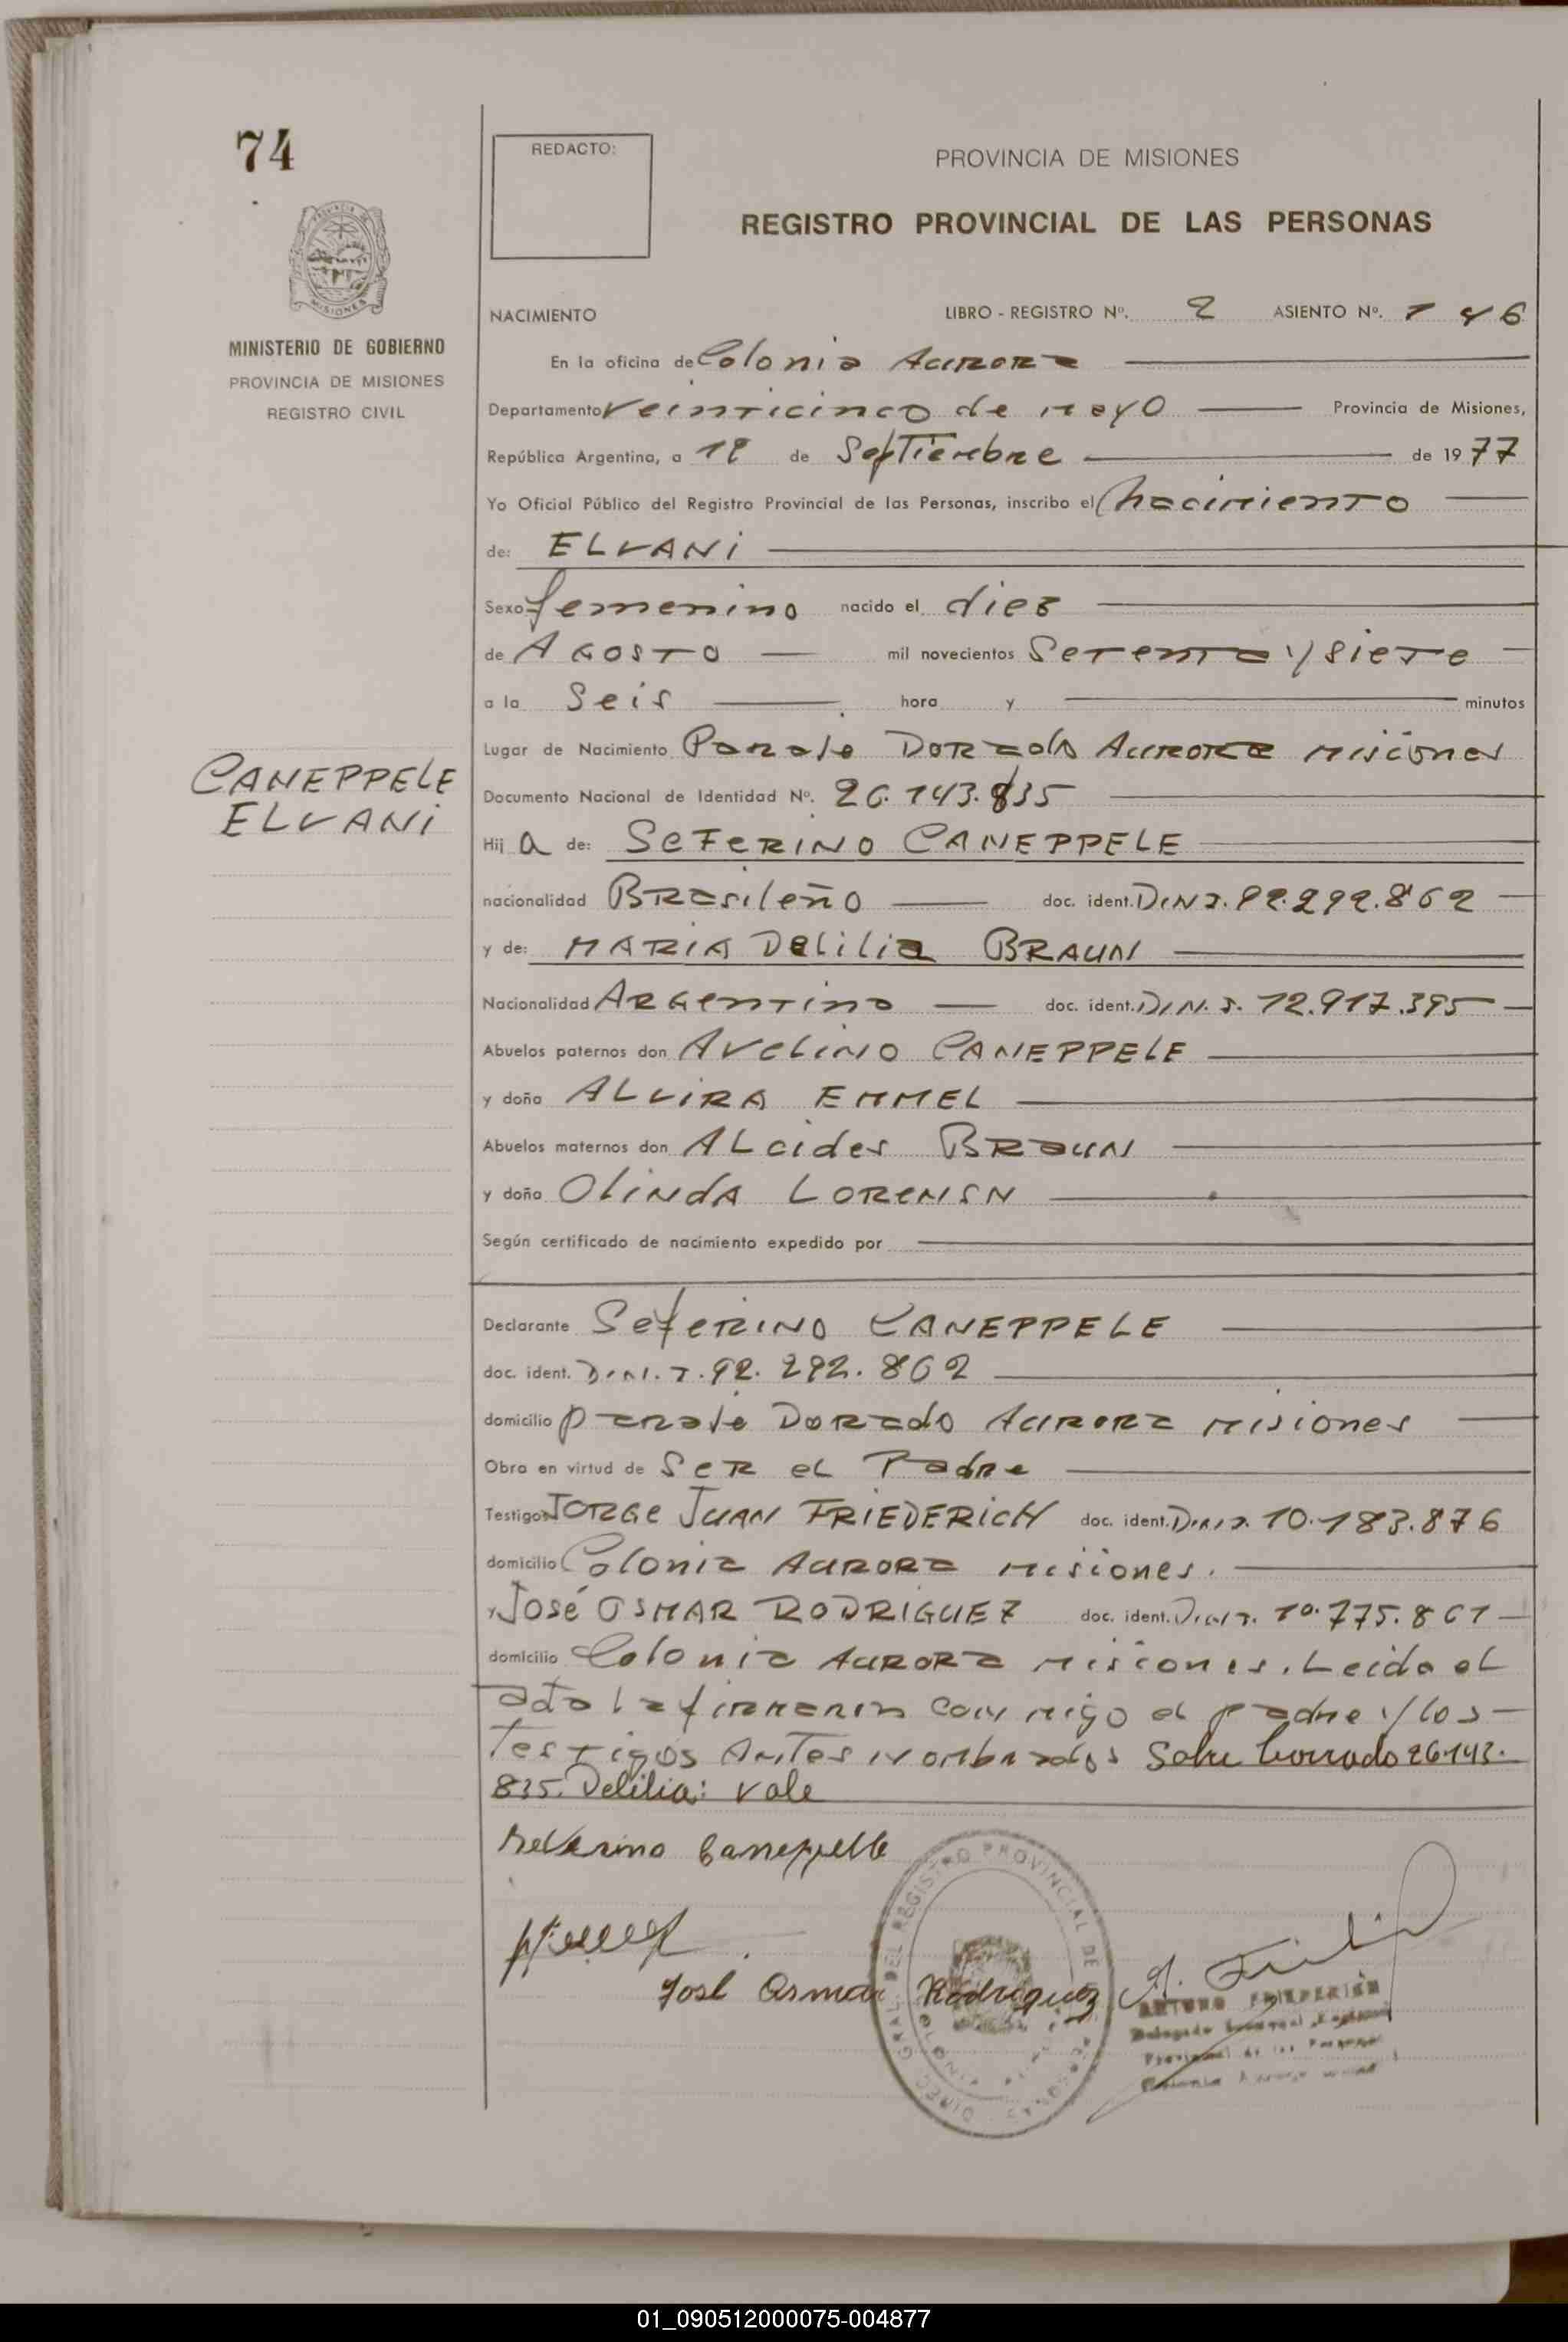 74
REDACTO:
PROVINCIA DE MISIONES
REGISTRO PROVINCIAL DE LAS PERSONAS
MISIONES
MINISTERIO DE GOBIERNO
PROVINCIA DE MISIONES
REGISTRO CIVIL
NACIMIENTO LIBRO - REGISTRO Nº. 2 ASIENTO Nº. 146
En la oficina de Colonia Aurora
Departamento Veinticinco de Mayo Provincia de Misiones,
República Argentina, a de Septiembre de 1977
Yo Oficial Público del Registro Provincial de las Personas, inscribo el Nacimiento
de: ELVANI
Sexo femenino nacido el diez
de AGOSTO mil novecientos Setenta y siete
a la Seis hora y minutos
Lugar de Nacimiento Paraje Dorado Aurora Misiones
CANEPPELE
ELVANI
Documento Nacional de Identidad Nº. 26.143.835
Hij a de: SEFERINO CANEPPELE
nacionalidad Brasileño doc. ident. D.N.I. 92.292.862
y de: MARIA Delilia BRAUN
Nacionalidad Argentino doc. ident. D.N.I. 12.917.395
Abuelos paternos don Avelino CANEPPELE
y doña ALVIRA EMMEL
Abuelos maternos don ALcides BRAUN
y doña Olinda LORENSN
Según certificado de nacimiento expedido por
Declarante Seferino CANEPPELE
doc. ident. D.N.I. 92.292.862
domicilio Paraje Dorado Aurora Misiones
Obra en virtud de Ser el Padre
Testigos JORGE JUAN FRIEDERICH doc. ident. D.N.I. 10.183.876
domicilio Colonia Aurora Misiones.
y José OSMAR RODRIGUEZ doc. ident. D.N.I. 10.775.861
domicilio Colonia Aurora Misiones. Leida el
acta la firmaron conmigo el padre y los
testigos Antes nombrados Sobre borrado 26.143.
835. Delilia: vale
Seferino Caneppelle
José Osmar Rodriguez
DIREC. GRAL. DEL REGISTRO PROVINCIAL DE PERSONAS
ARTURO FRIEDERICH
01_090512000075-004877